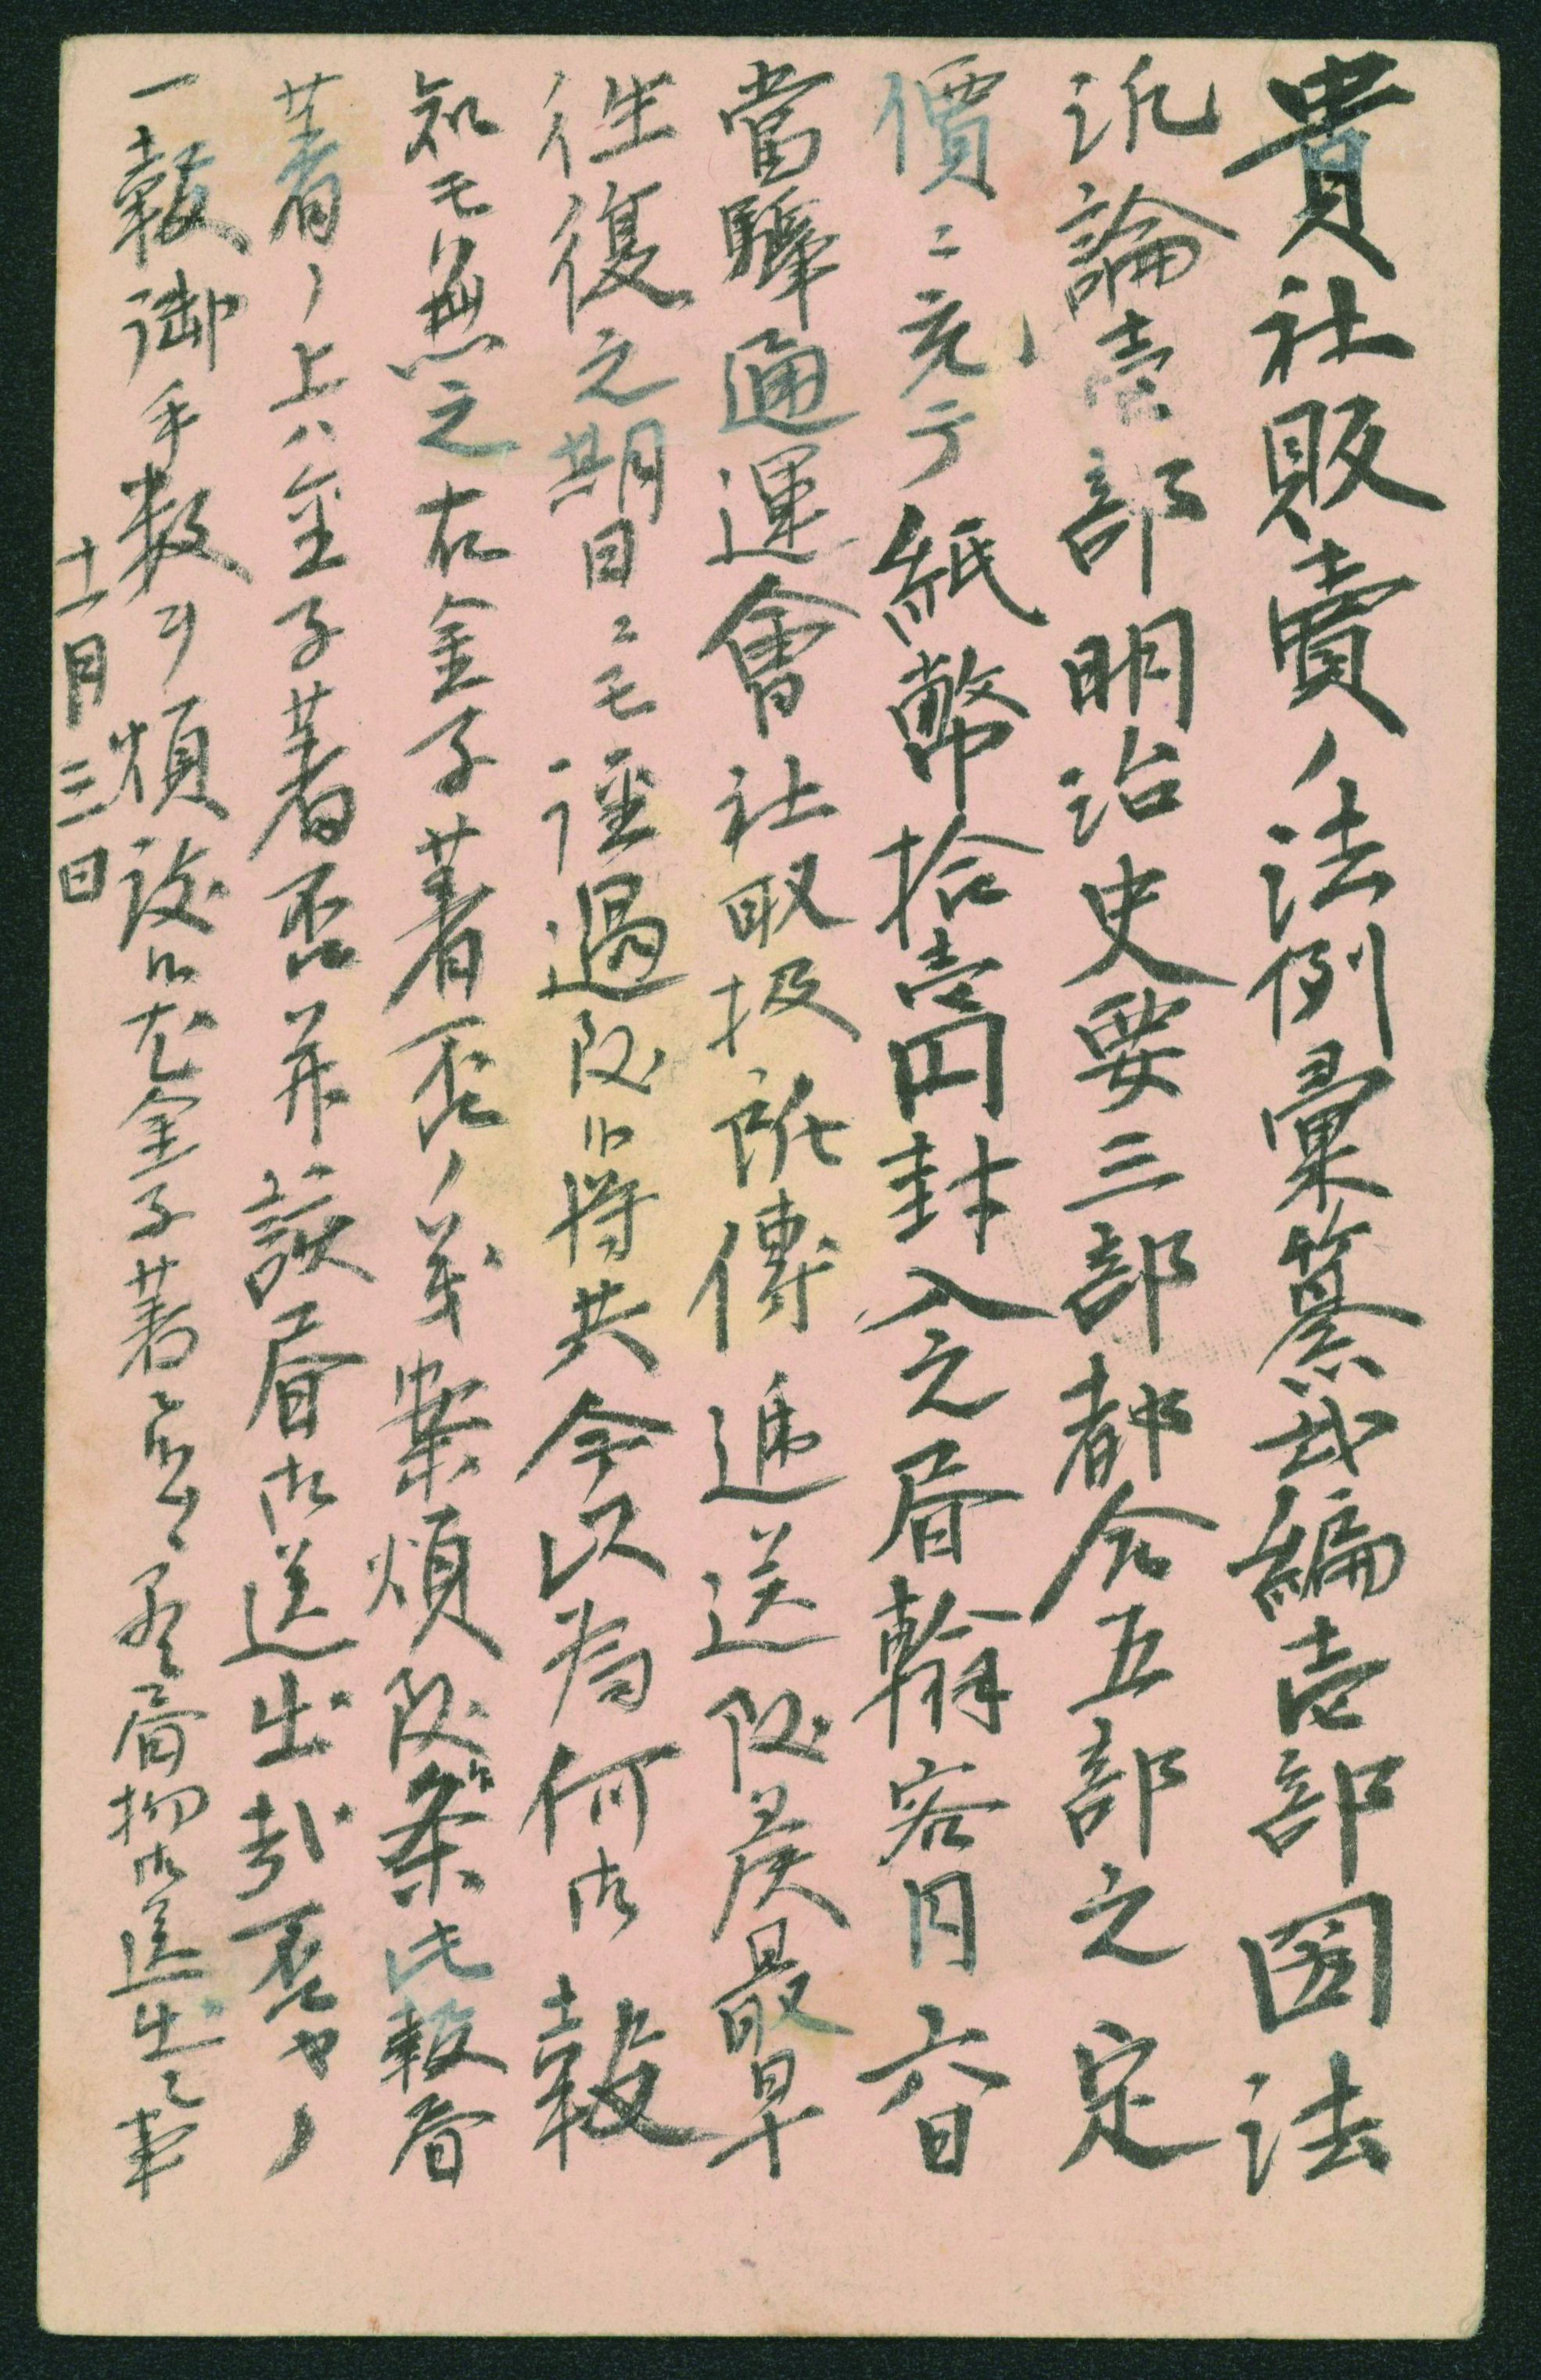 貴社販賣ノ法例彙纂貳編壱部国法
汎論壱部明治史要三部都合五部之定
價ニ充テ紙幣拾壱円封入之書翰客月六日
當驛通運會社取扱所傳逓送致候最早
往復之期日ニモ経過致候得共今以為何御報
知モ無之右金子着否ノ義案煩致条此報書
着ノ上ハ金子着否并該書御送出相否ヤノ
一報御手数ヲ煩致候尤金子着ニ無之書物御送出之事
十一月三日